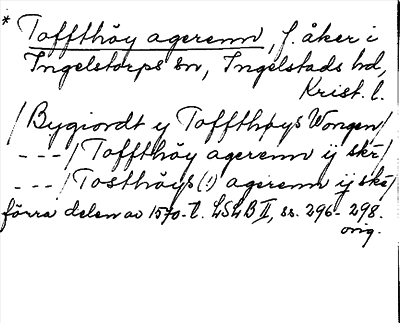 * Toffthöy agerenn, f. åker i
Ingelstorps sn, Ingelstads hd,
Krist. l.
/ Bygiordt y Toffthøys Wongen /
---/ Toffthöy agerenn ij skr /
---/ Tosthöys (!) agerenn ij skr /
förra delen av 1570-t. LSLB II, ss. 296-298.
orig.